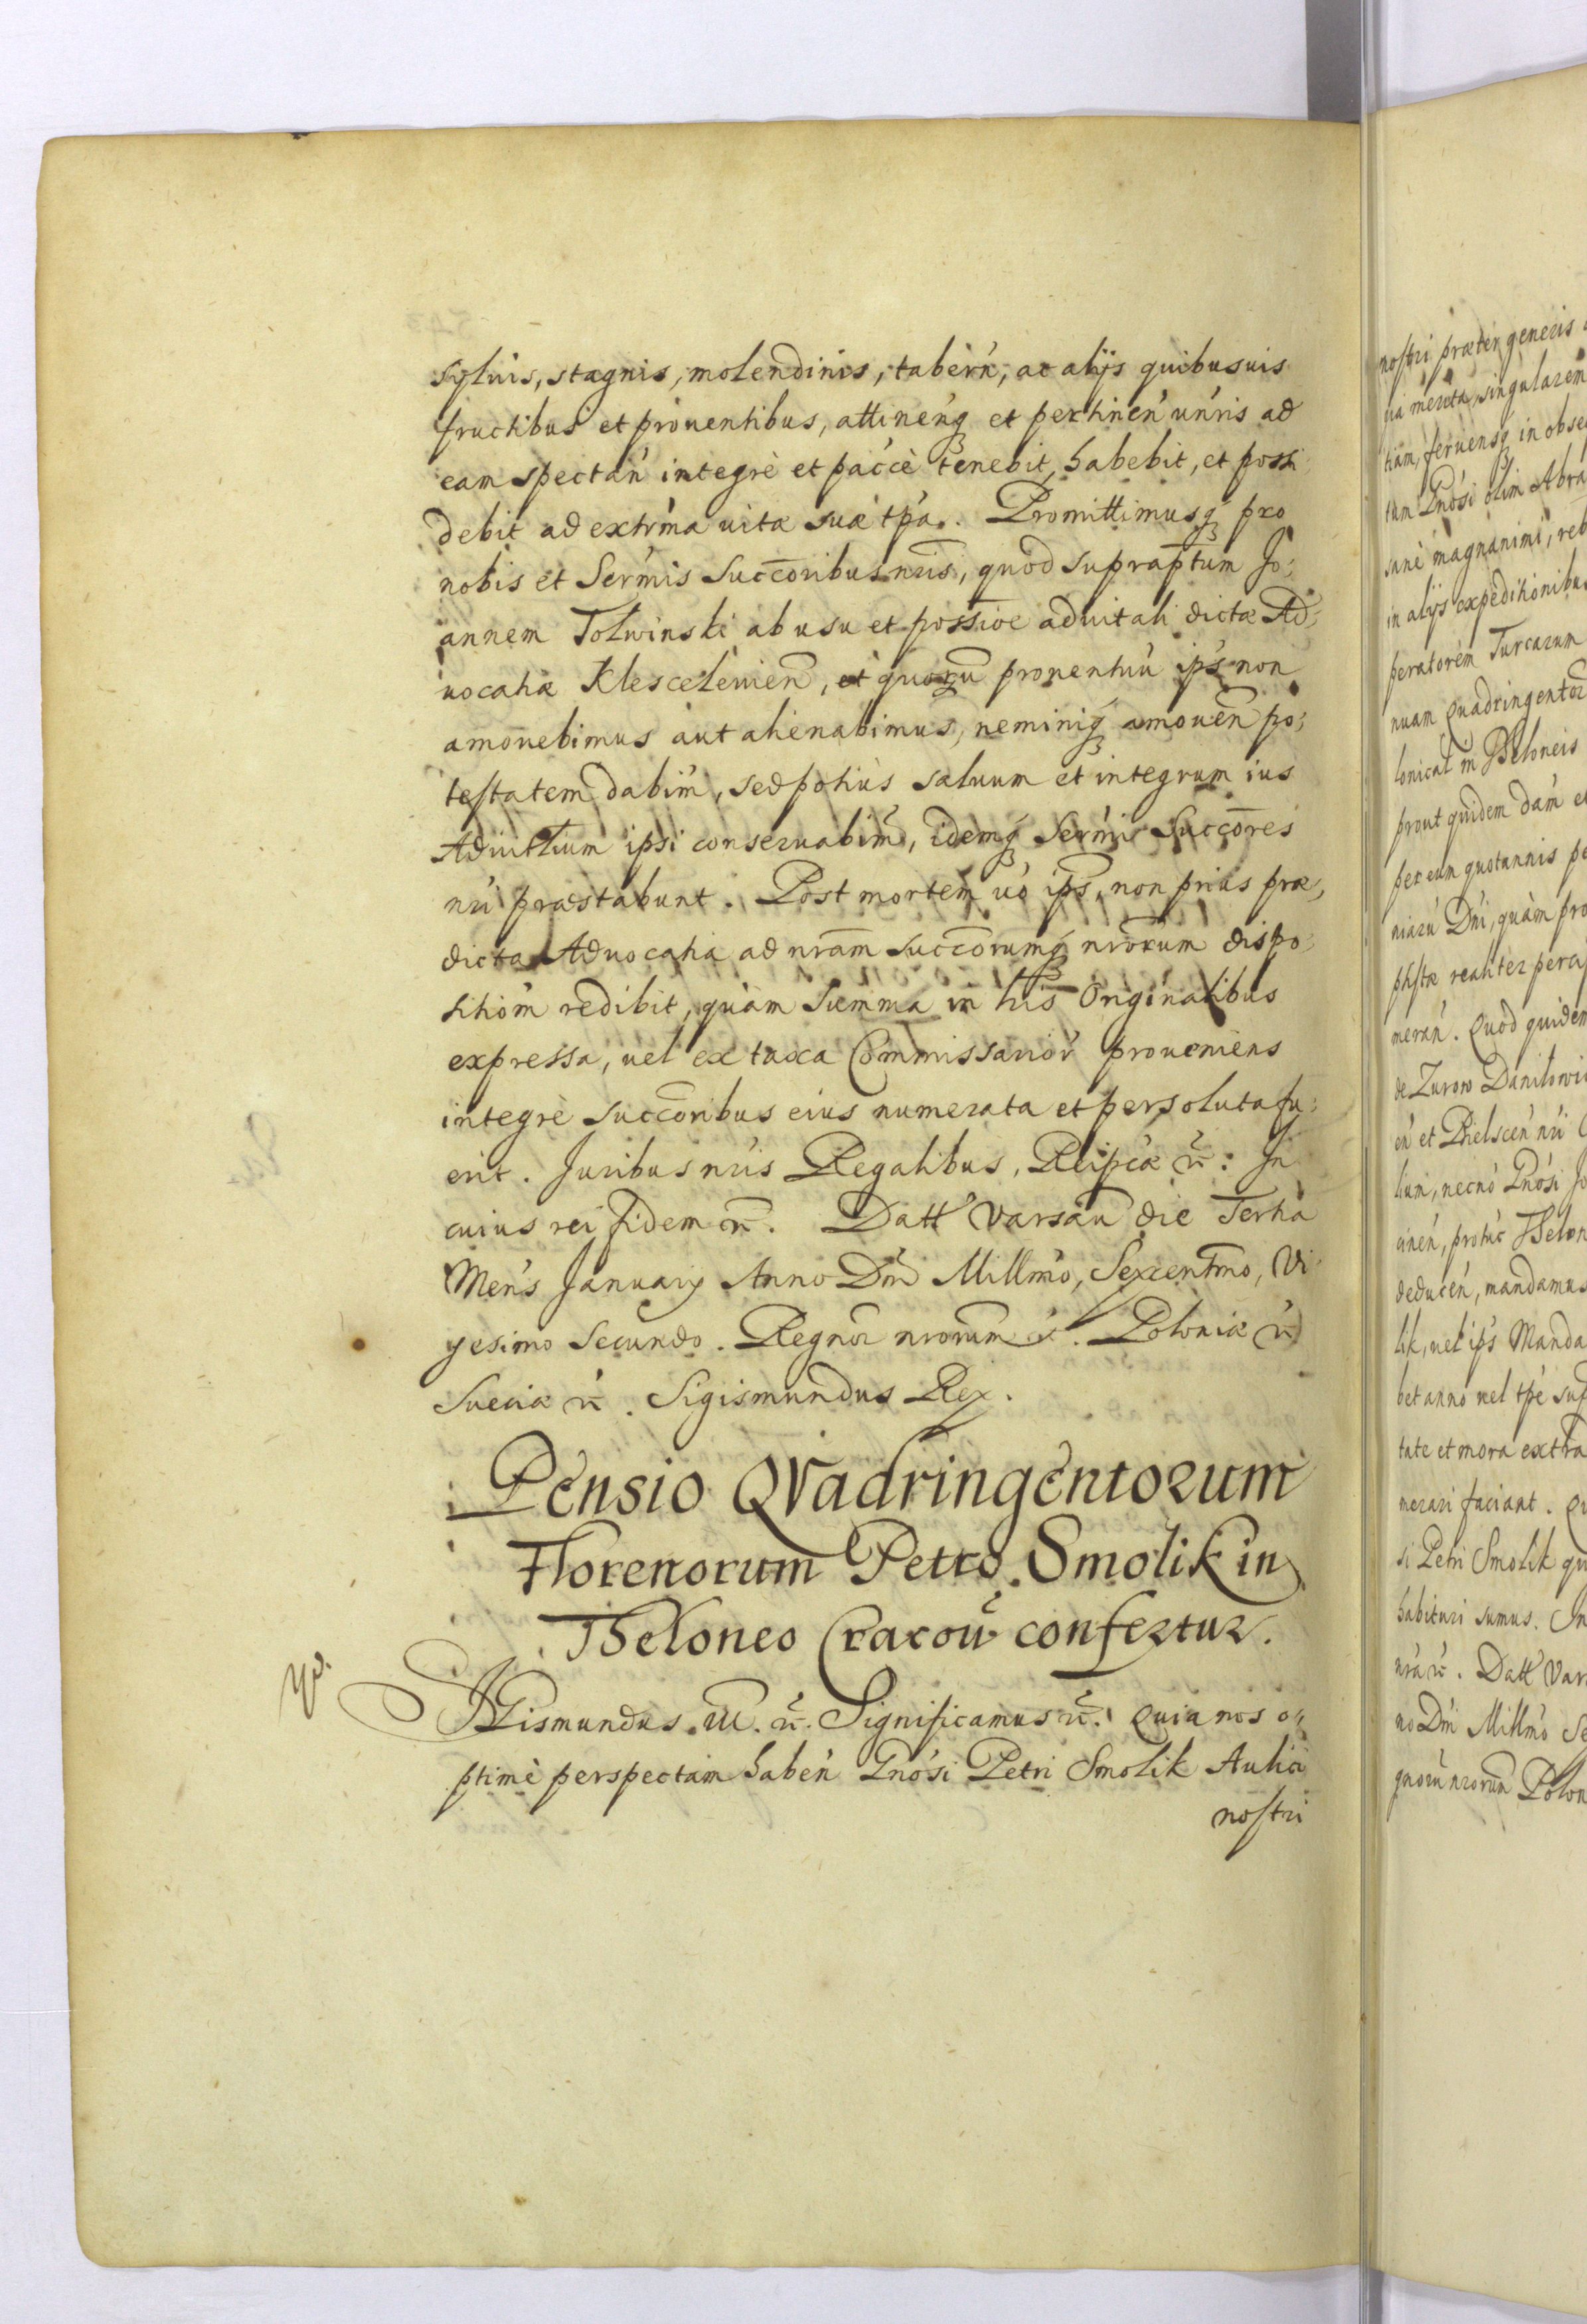 syluis, stagnis, molendinis, tabern, ac alijs quibusuis
fructibus et prouentibus, attinenq et pertinen unris ad
eam spectan integrè et paccè tenebit, habebit, et possi
debit ad extrma uitæ suæ tpa. Promittimusq pro
nobis et Sermis Succoribus nris, quod supraptum Jo:
annem Tolwinski ab usu et possioe aduitali dictæ Ad:
uocatiæ Klesceleuien, et quorũ prouentuũ ips non
amouebimus aut alienabimus, neminiq amouen po:
testatem dabim, sed potius saluum et integrum ius
Aduitltium ipsi conseruabim, idemq Sermi Succores
nri præstabunt. Post mortem uo ips, non prius præ,
dicta Aduocatia ad nram succorumq nrorum dispo:
sitiom redibit, quàm summa in his Originalibus
expressa, uel ex taxa Commissarior proueniens
integrè succoribus eius numerata et persoluta fu:
erit. Juribus nris Regalibus, Reipcæ etc: In
cuius rei fidem etc. Datt Varsau die Tertia
Mens Januarij Anno Dni Millmo, Sexcentmo, Vi
gesimo Secundo. Regnor nrorum etc. Poloniæ etc
Sueciæ etc. Sigismundus Rex.
Pensio QVadringentorum
Florenorum Petro Smolik in
Theloneo Cracou confertur.
SIGismundus III. etc. Significamus etc. Quia nos o,,
ptimè perspectam haben Gnosi Petri Smolik Aulici
nostri
nostri præter generis
tum Gnosi olim Abra
sanè magnanimi, reb
in alijs expeditionibus
peratorem Turcarum
nuam Quadringentor
prout quidem dam et
per eum quotannis pe
niarũ Dni, quàm pro
realiter percip
meran. Quod quidem
de Zurow Danilowi
lium, necno Gnosi Jo
deducen, mandamus
lik, uel ips Manda
bet anno uel tpe sup
tate et mora extra
merari faciant. Qu
si Petri Smolik qu
habituri sumus. In
nra etc. Datt Var
no Dni Millmo Se
gnorũ nrorum Polon